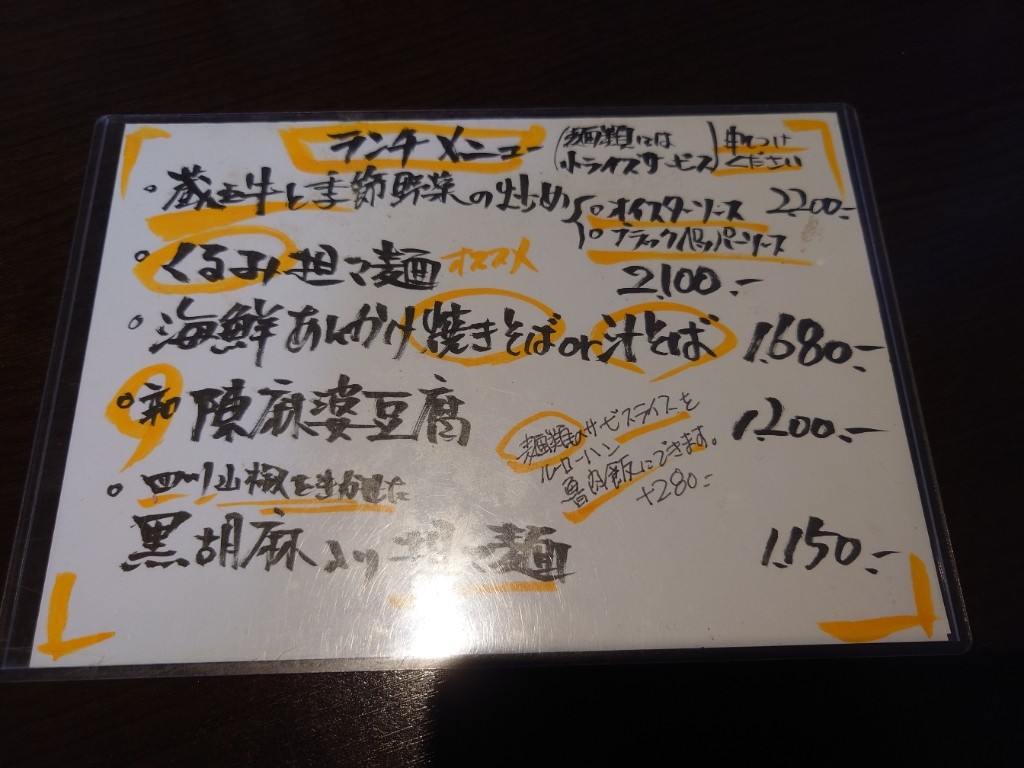 ランチメニュー
(麺類には
小ライスサービス)
申しつけ
ください
・蔵王牛と季節野菜の炒め
{○オイスターソース 2200.-
○ブラックペッパーソース
・くるみ担々麺 オススメ 2,100.-
・海鮮あんかけ焼きそばor汁そば 1,680.-
陳麻婆豆腐 1,200.-
麺類のサービスライスを
ルーローハン
魯肉飯にできます。
+280.-
・四川山椒を きかせた
黒胡麻入り担々麺 1,150.-